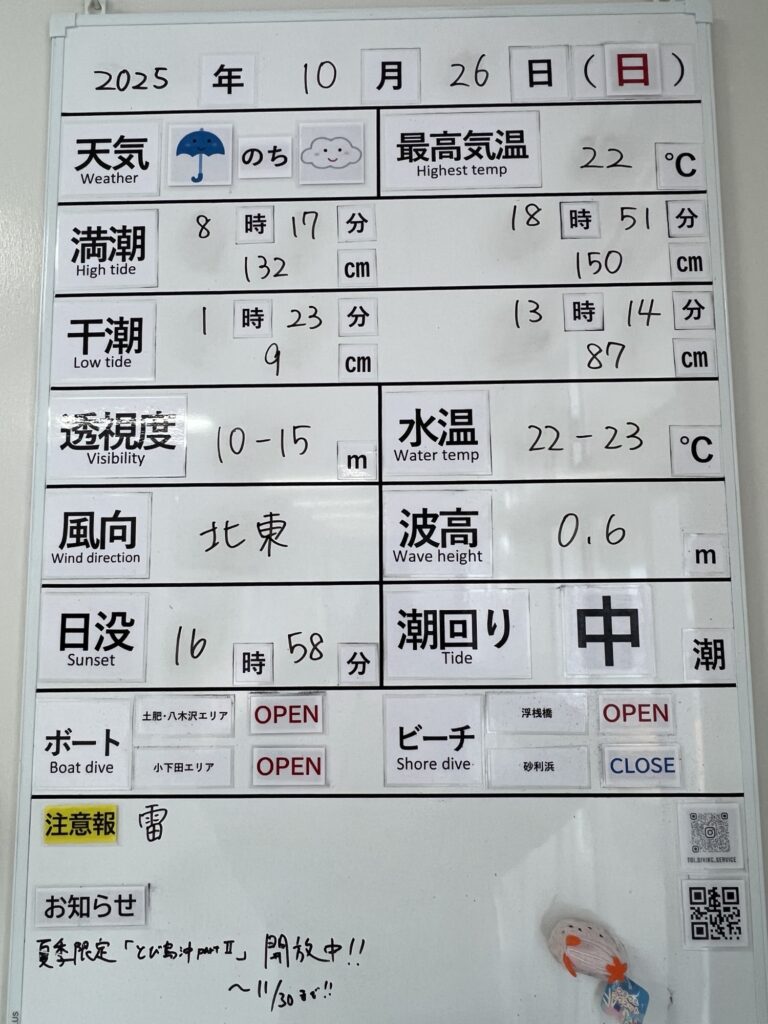 2025 年 10 月 26 日 (日)
天気 のち 最高気温 22 ℃
Weather Highest temp
満潮 8 時 17 分 18 時 51 分
High tide 132 cm 150 cm
干潮 1 時 23 分 13 時 14 分
Low tide 9 cm 87 cm
透視度 10-15 m 水温 22-23 ℃
Visibility Water temp
風向 北東 波高 0.6 m
Wind direction Wave height
日没 16 時 58 分 潮回り 中 潮
Sunset Tide
ボート 土肥・八木沢エリア OPEN ビーチ 浮桟橋 OPEN
Boat dive 小下田エリア OPEN Shore dive 砂利浜 CLOSE
注意報 雷
TOI_DIVING_SERVICE
お知らせ
夏季限定「とび島沖 part Ⅱ」開放中!!
～11/30まで!!